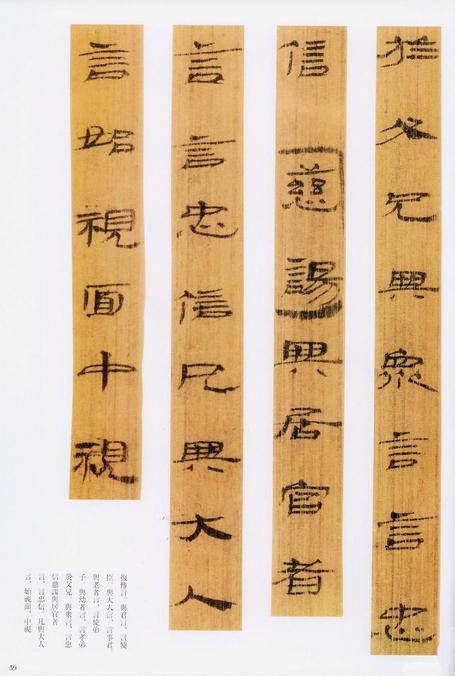 於父兄與衆言言忠
信慈諹與居官者
言言忠信凡與大人
言始視面中視
傳言、與君言、言使
臣、與大人言、言事君、
與老者言、言使弟
子、與幼者言、言孝弟
於父兄、與衆言、言忠
信慈諹與居官者
言、言忠信、凡與大人
言、始視面、中視
59